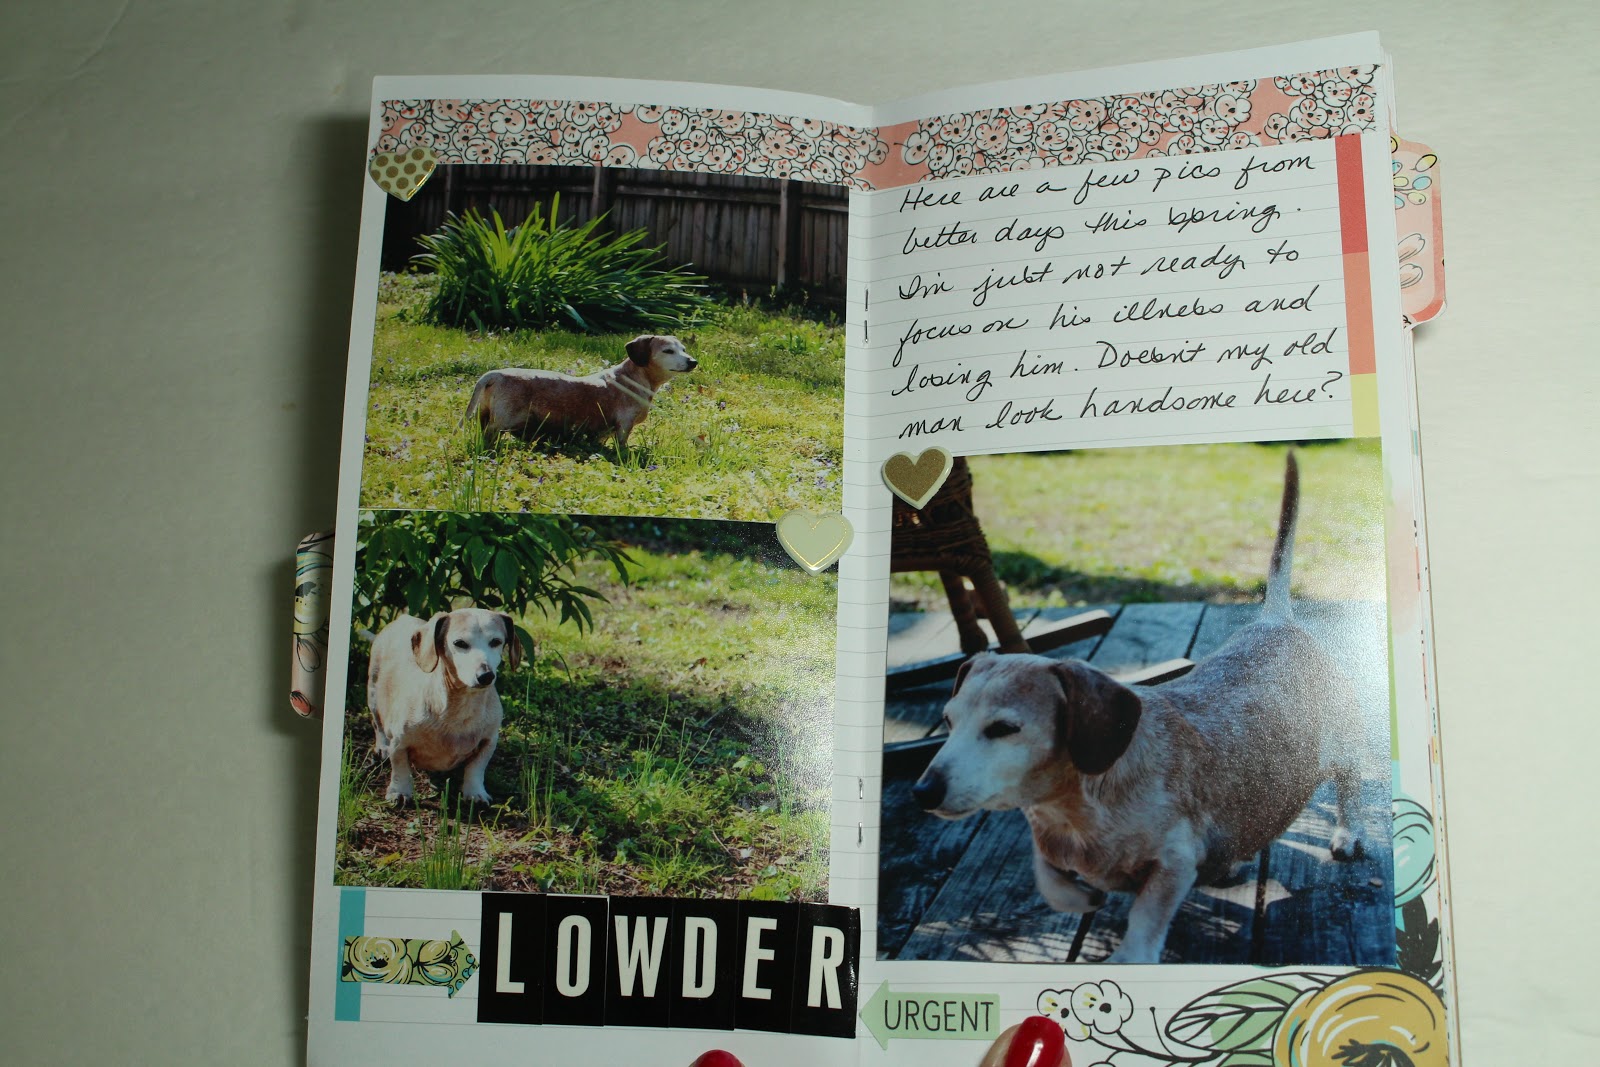 Here are a few pics from
better days this spring.
I'm just not ready to
focus on his illness and
losing him. Doesn't my old
man look handsome here?
LOWDER
URGENT